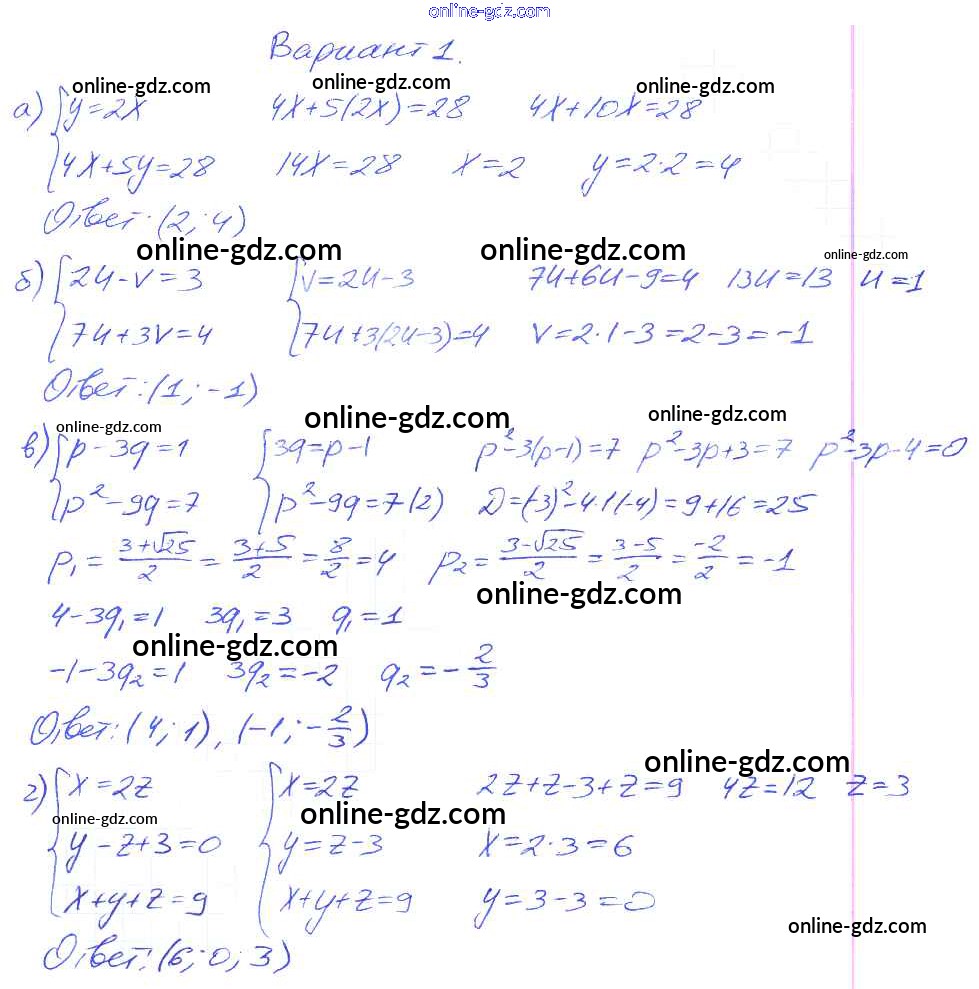 online-gdz.com
Вариант 1.
online-gdz.com online-gdz.com online-gdz.com
а) { y=2x   4x+5(2x)=28   4x+10x=28
4x+5y=28   14x=28   x=2   y=2·2=4
Ответ: (2; 4)
online-gdz.com online-gdz.com online-gdz.com
б) { 2u-v=3   { v=2u-3   7u+6u-9=4   13u=13   u=1
7u+3v=4   7u+3(2u-3)=4   v=2·1-3=2-3=-1
Ответ: (1; -1)
online-gdz.com online-gdz.com online-gdz.com
в) { p-3q=1   { 3q=p-1   p²-3(p-1)=7   p²-3p+3=7   p²-3p-4=0
p²-9q=7   p²-9q=7(2)   D=(-3)²-4·1(-4)=9+16=25
p₁=(3+√25)/2=(3+5)/2=8/2=4   p₂=(3-√25)/2=(3-5)/2=-2/2=-1
online-gdz.com
4-3q₁=1   3q₁=3   q₁=1
online-gdz.com
-1-3q₂=1   3q₂=-2   q₂=-2/3
Ответ: (4; 1), (-1; -2/3)
online-gdz.com
г) { x=2z   { x=2z   2z+z-3+z=9   4z=12   z=3
online-gdz.com online-gdz.com
y-z+3=0   y=z-3   x=2·3=6
x+y+z=9   x+y+z=9   y=3-3=0
online-gdz.com
Ответ: (6; 0; 3)